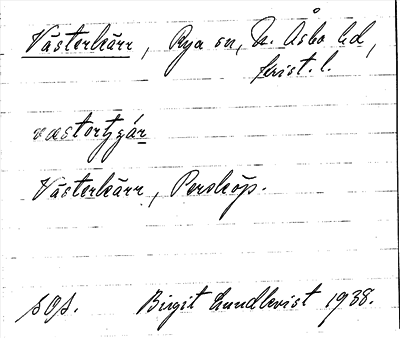 Västerkärr, Rya sn, N. Åsbo hd,
krist. l.
væstortygár
Västerkärr, Perstorp.
sOp. Birgit Lundkvist 1938.